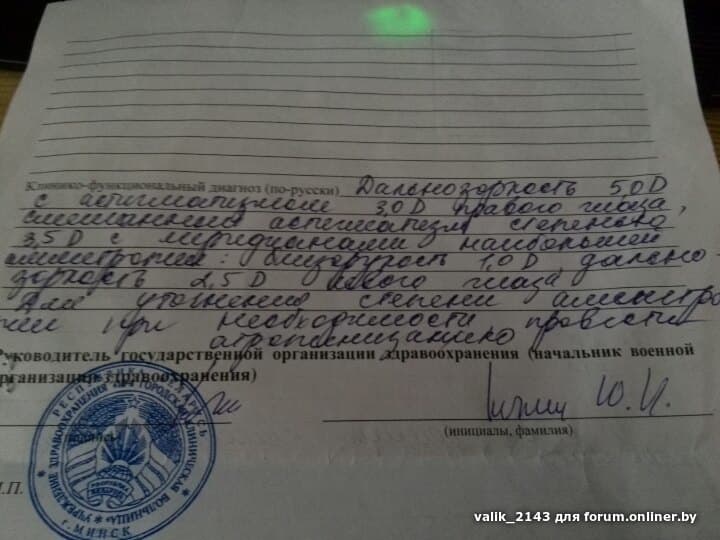 Клинико-функциональный диагноз (по-русски) Дальнозоркость 5,0 D
с астигматизмом 3,0 D правого глаза,
смешанный астигматизм степенью
3,5 D с меридианами наибольшей
аметропии: близорукость 1,0 D, дально-
зоркость 2,5 D левого глаза
Для уточнения степени аметро
пии при необходимости провести
атропинизацию
Руководитель государственной организации здравоохранения (начальник военной
организации здравоохранения)
Ю. И.
(инициалы, фамилия)
М.П.
РЕСПУБЛИКА БЕЛАРУСЬ
УЧРЕЖДЕНИЕ ЗДРАВООХРАНЕНИЯ ГОРОДСКАЯ КЛИНИЧЕСКАЯ БОЛЬНИЦА
г. МИНСК
valik_2143 для forum.onliner.by